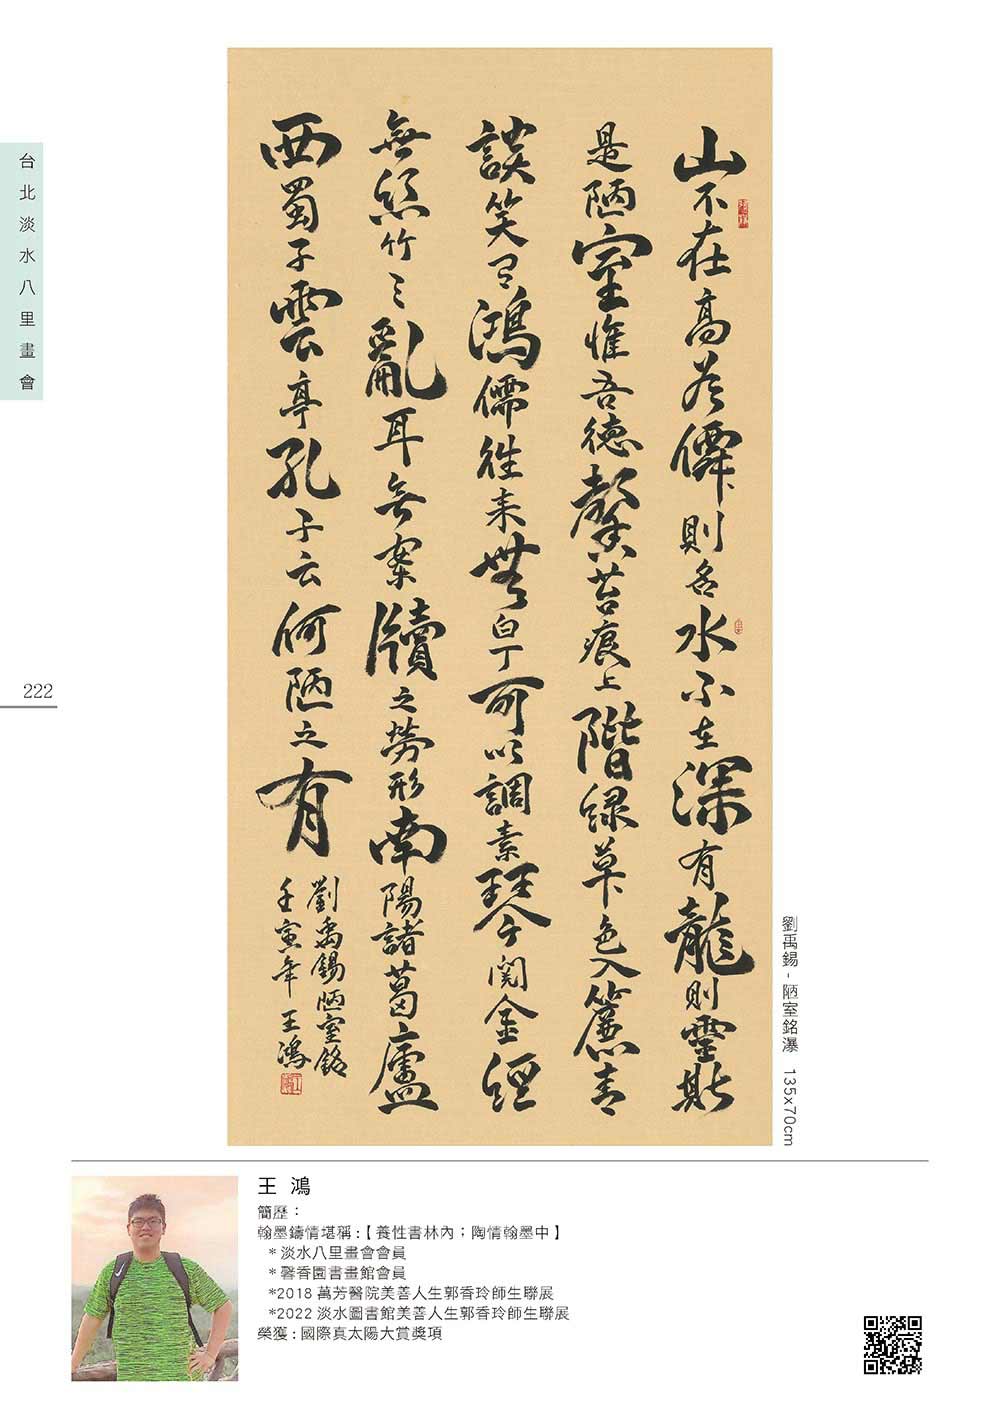 台北淡水八里畫會
222
山不在高有僊則名水不在深有龍則靈斯
是陋室惟吾德馨苔痕上階綠草色入簾青
談笑有鴻儒往來無白丁可以調素琴閱金經
無絲竹之亂耳無案牘之勞形南陽諸葛廬
西蜀子雲亭孔子云何陋之有
劉禹錫陋室銘
壬寅年王鴻
劉禹錫 - 陋室銘瀑 135x70cm
王 鴻
簡歷：
翰墨鑄情堪稱:【養性書林內；陶情翰墨中】
*淡水八里畫會會員
*馨香園書畫館會員
*2018 萬芳醫院美善人生郭香玲師生聯展
*2022 淡水圖書館美善人生郭香玲師生聯展
榮獲:國際真太陽大賞獎項